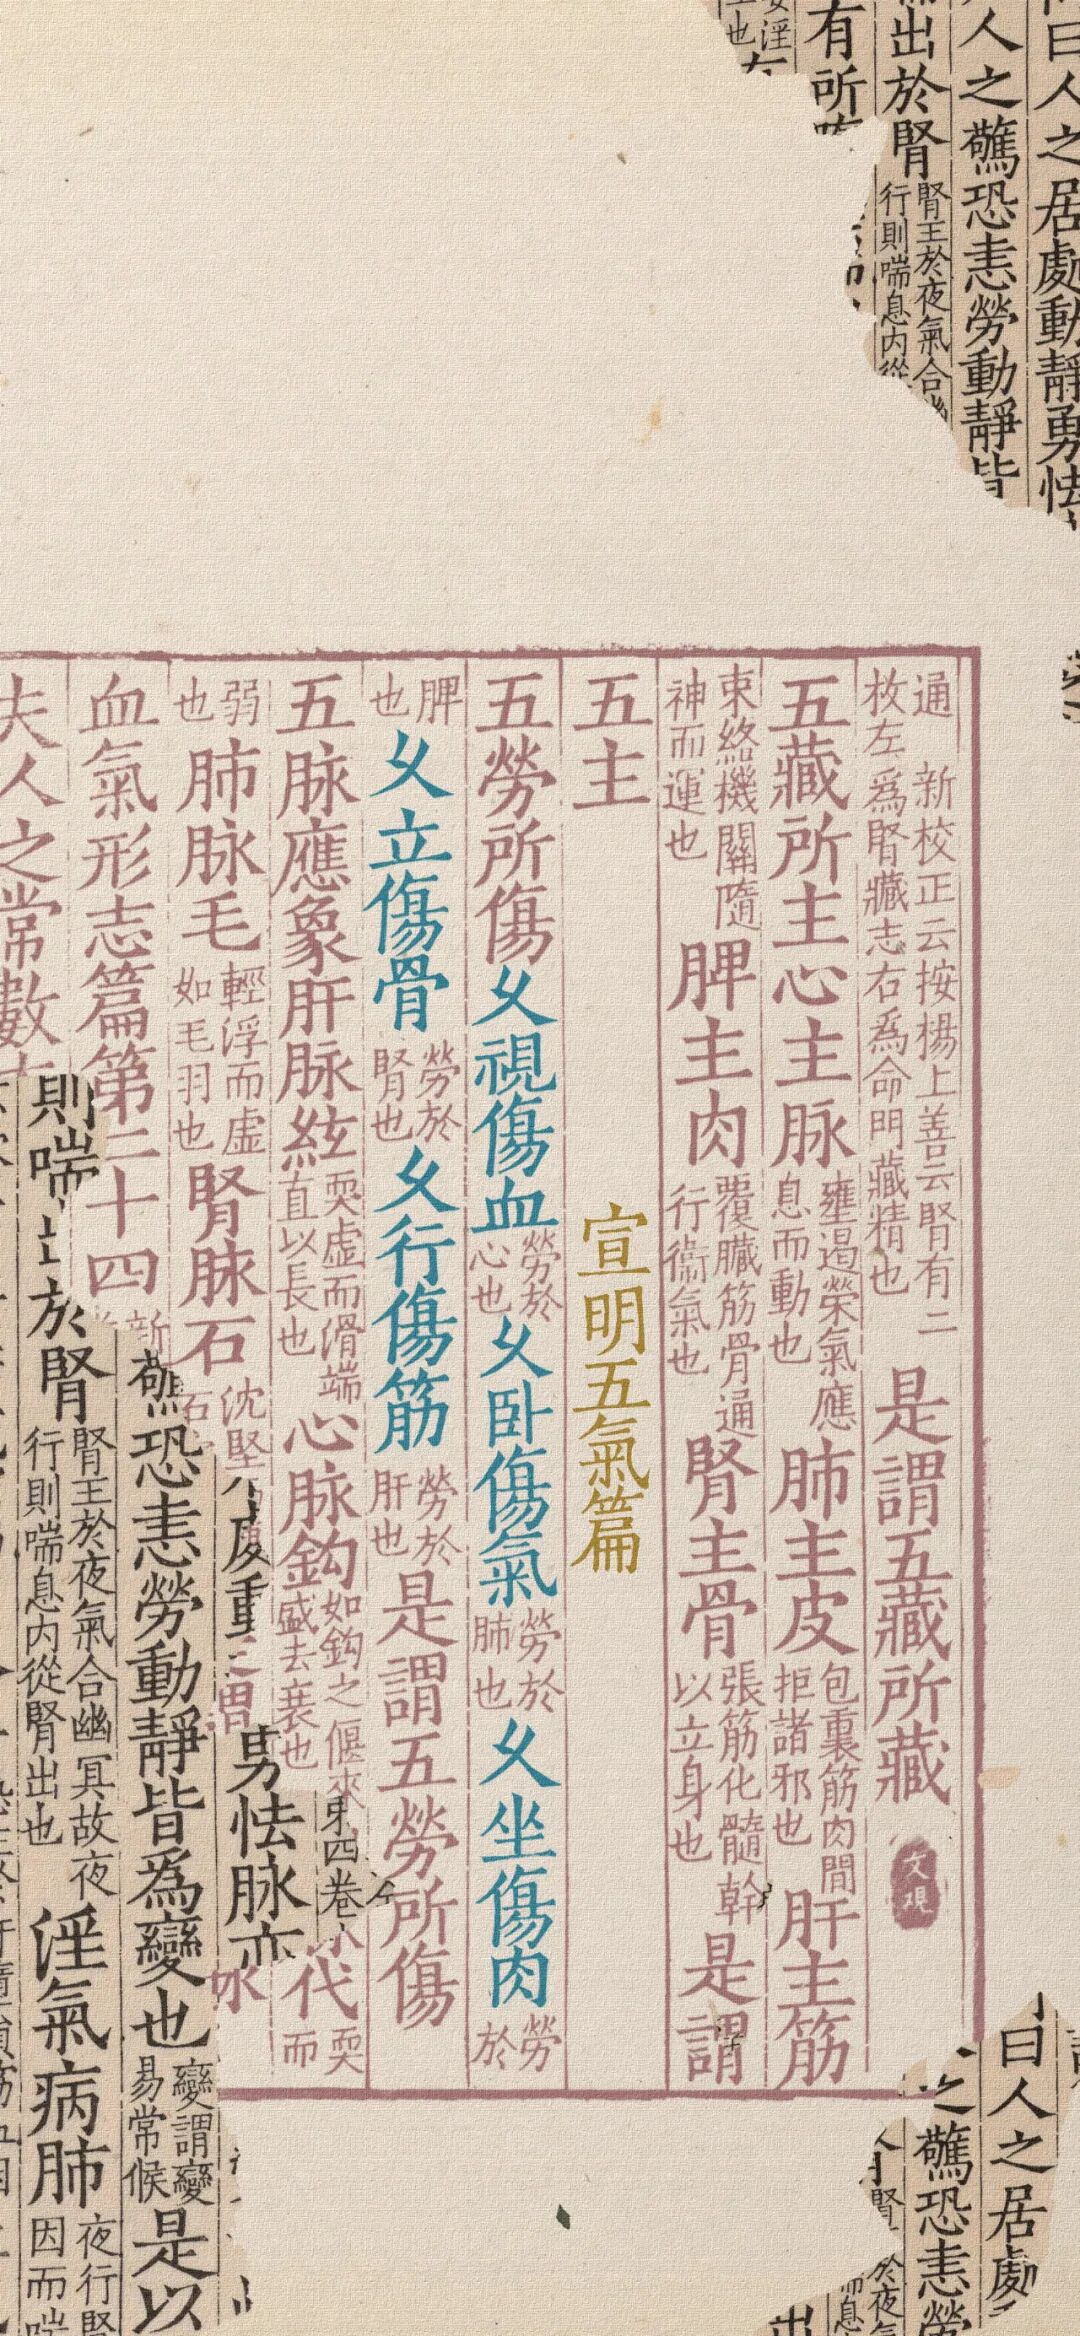 通 新校正云按楊上善云腎有二
枚左爲腎藏志右爲命門藏精也
是謂五藏所藏
五藏所主心主脉
壅遏榮氣應
息而動也
肺主皮
包裹筋肉間
拒諸邪也
肝主筋
束絡機關隨
神而運也
脾主肉
覆臟筋骨通
行衞氣也
腎主骨
張筋化髓幹
以立身也
是謂
五主
宣明五氣篇
五勞所傷
久視傷血
勞於
心也
久卧傷氣
勞於
肺也
久坐傷肉
勞於
脾
也
久立傷骨
勞於
腎也
久行傷筋
勞於
肝也
是謂五勞所傷
五脉應象肝脉絃
耎虛而滑端
直以長也
心脉鈎
如鈎之偃來
盛去衰也
代
耎而
弱
也
肺脉毛
輕浮而虛
如毛羽也
腎脉石
沈堅
血氣形志篇第二十四
新
夫人之常數
曰人之居處動靜勇怯
人之驚恐恚勞動靜皆
出於腎
腎王於夜氣合
行則喘息内從
有所
勇怯脉亦
第四卷
驚恐恚勞動靜皆爲變也
變謂變
易常候
是以
則喘出於腎
腎王於夜氣合幽冥故夜
行則喘息内從腎出也
淫氣病肺
夜行腎
因而喘
曰人之居處
之驚恐恚勞
文規